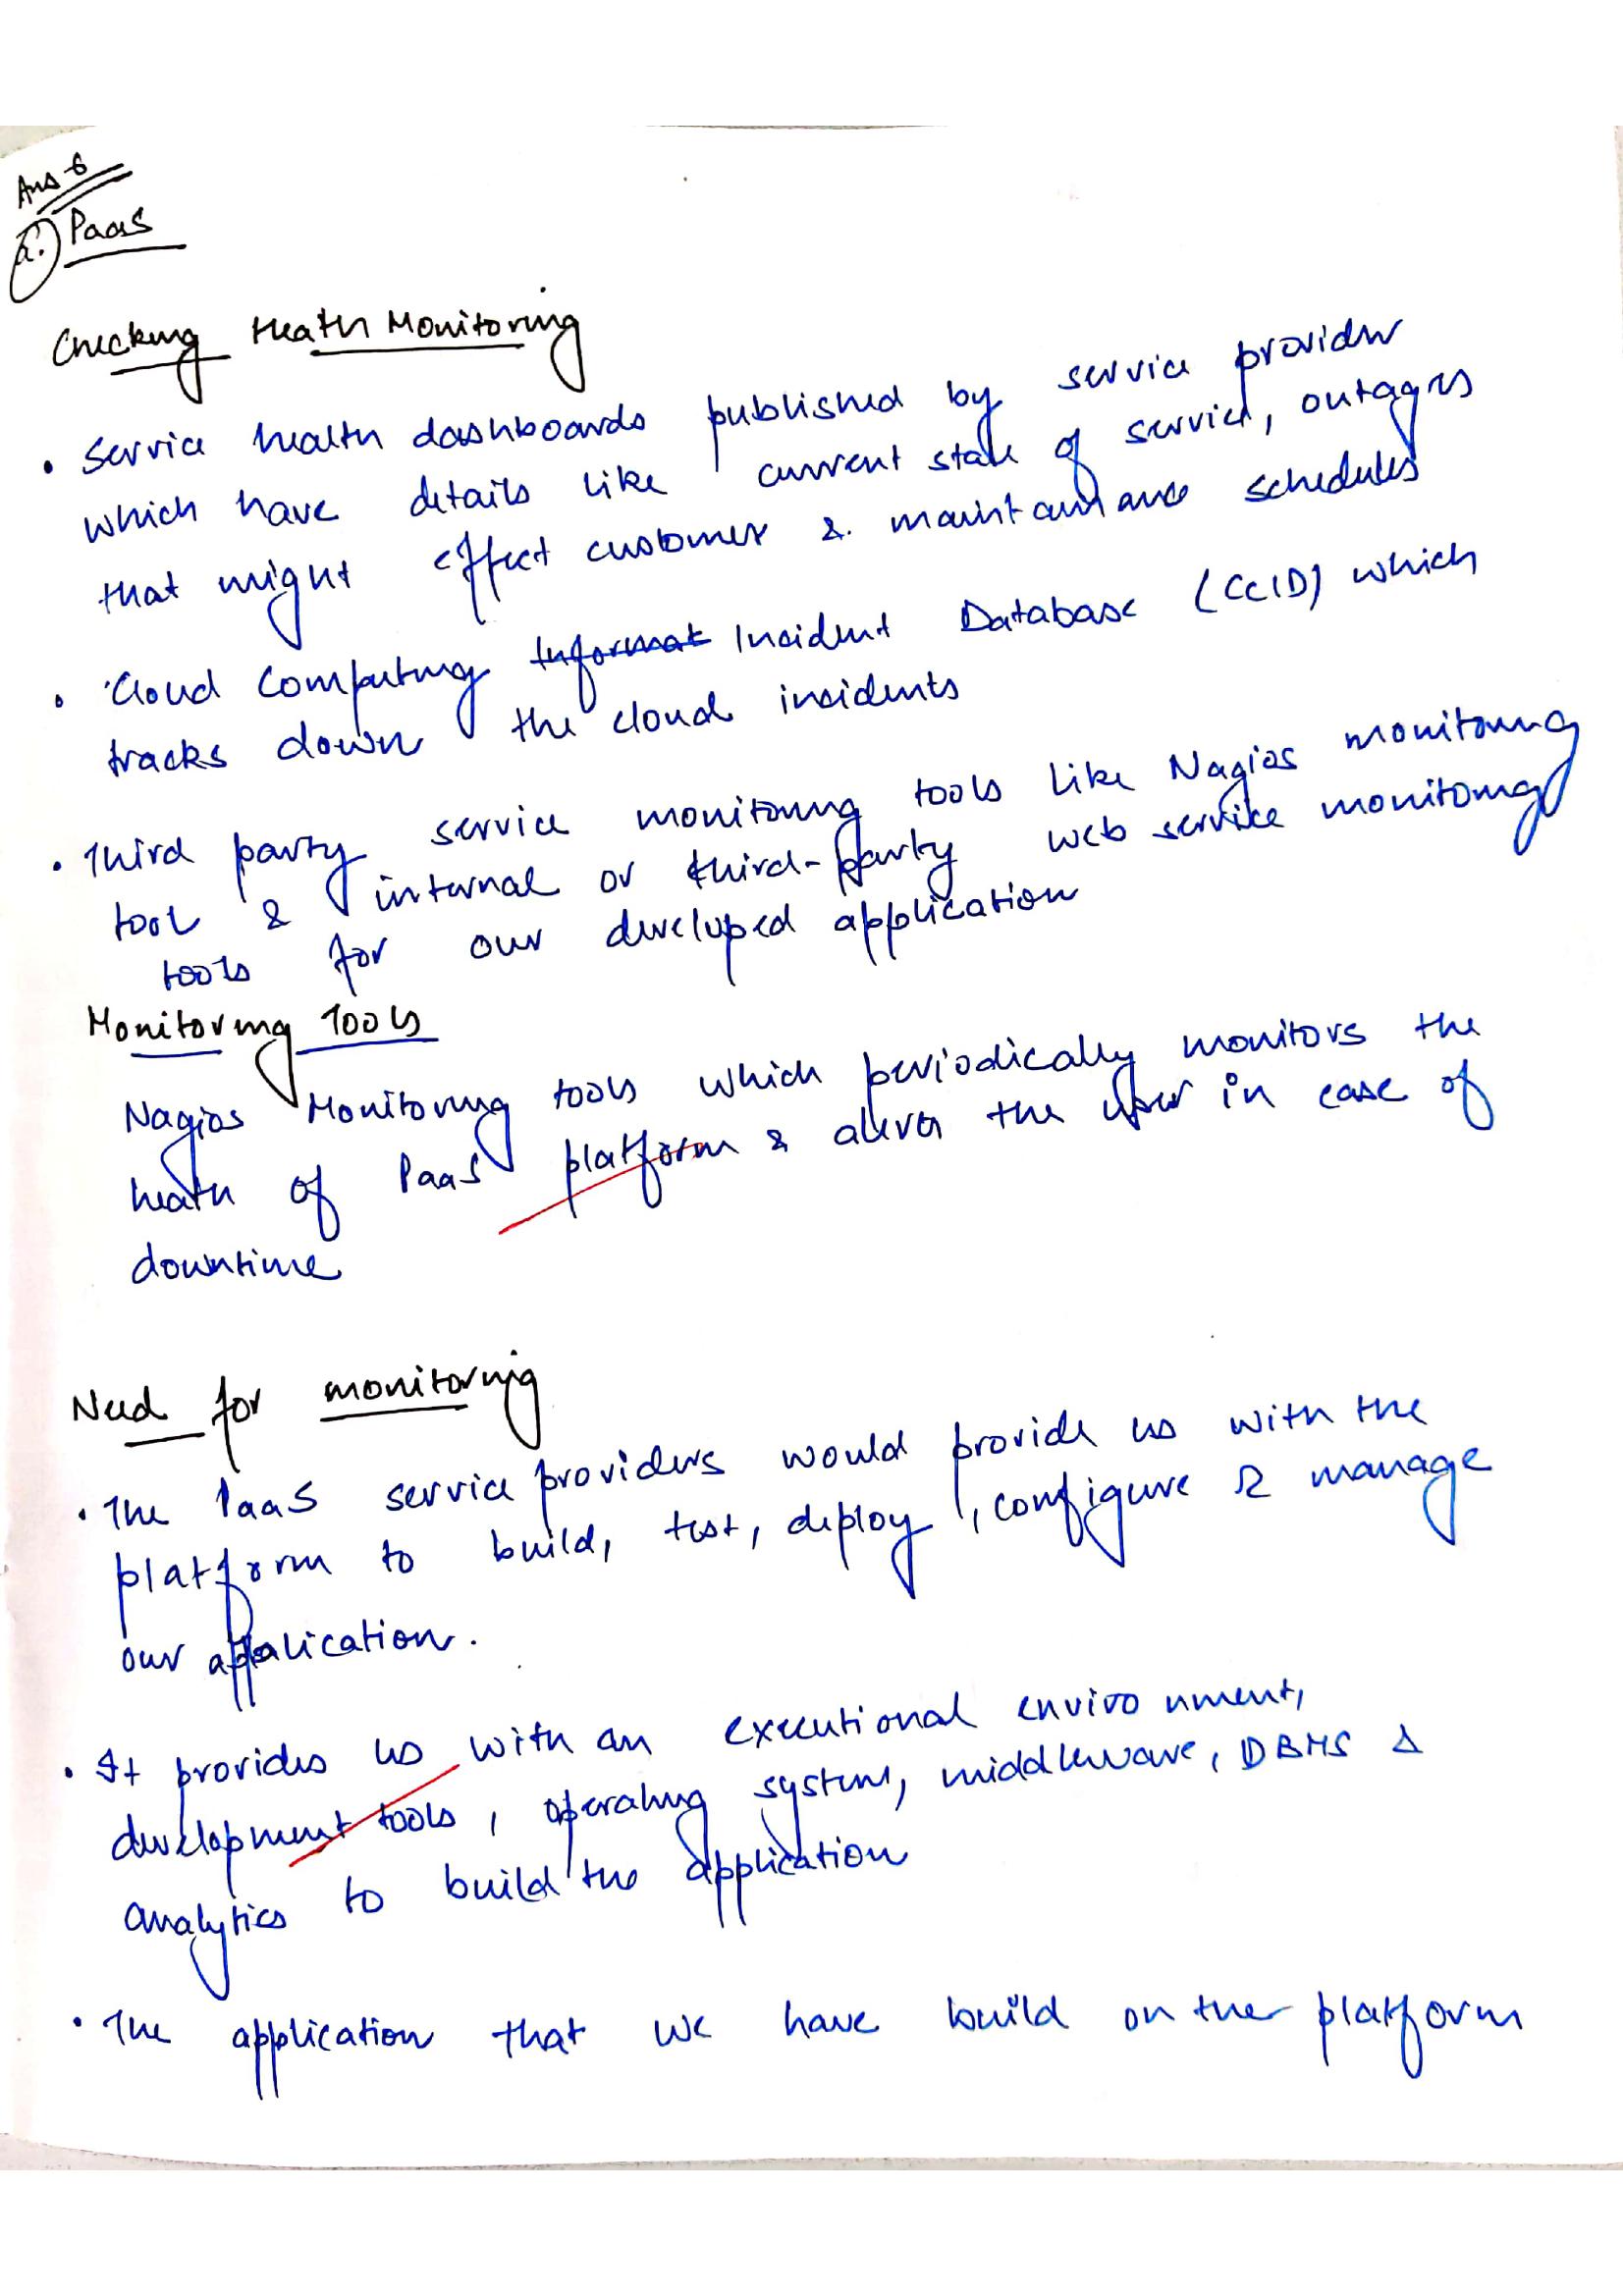 Ans-6
a. PaaS
Checking Heath Monitoring
• Service health dashboards published by service provider
which have details like current state of service, outages
that might effect customer & maintainance schedules
• Cloud Computing Informat Incident Database (CCID) which
tracks down the cloud incidents
• Third party service monitoring tools like Nagios monitoring
tool & internal or third-party web service monitoring
tools for our developed application
Monitoring Tools
Nagios Monitoring tools which periodically monitors the
heath of PaaS platform & alerts the user in case of
downtime
Need for monitoring
• The PaaS service providers would provide us with the
platform to build, test, deploy, configure & manage
our application.
• It provides us with an executional environment,
development tools, operating systems, middleware, DBMS &
analytics to build the application
• The application that we have build on the platform